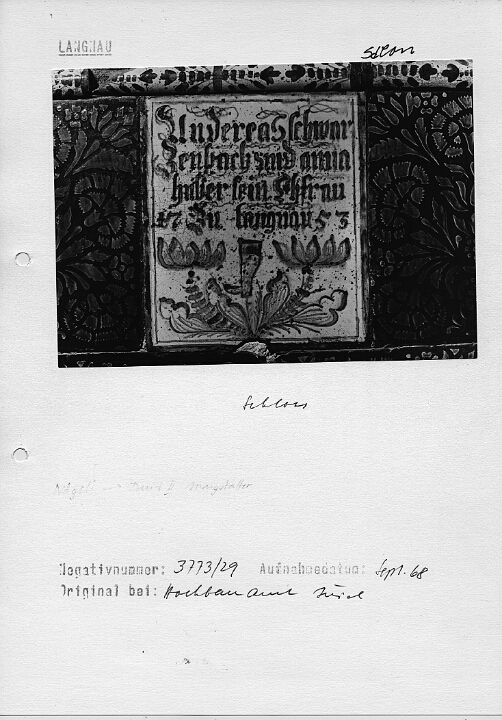 LANGNAU
Andereas schwar
Zenbach und anna
huber sein Ehfrau
17 Zu langnau 53
Schloss
Negativnummer: 3773/29 Aufnahmedatum: Sept. 68
Original bei: Hochbauamt Zürich